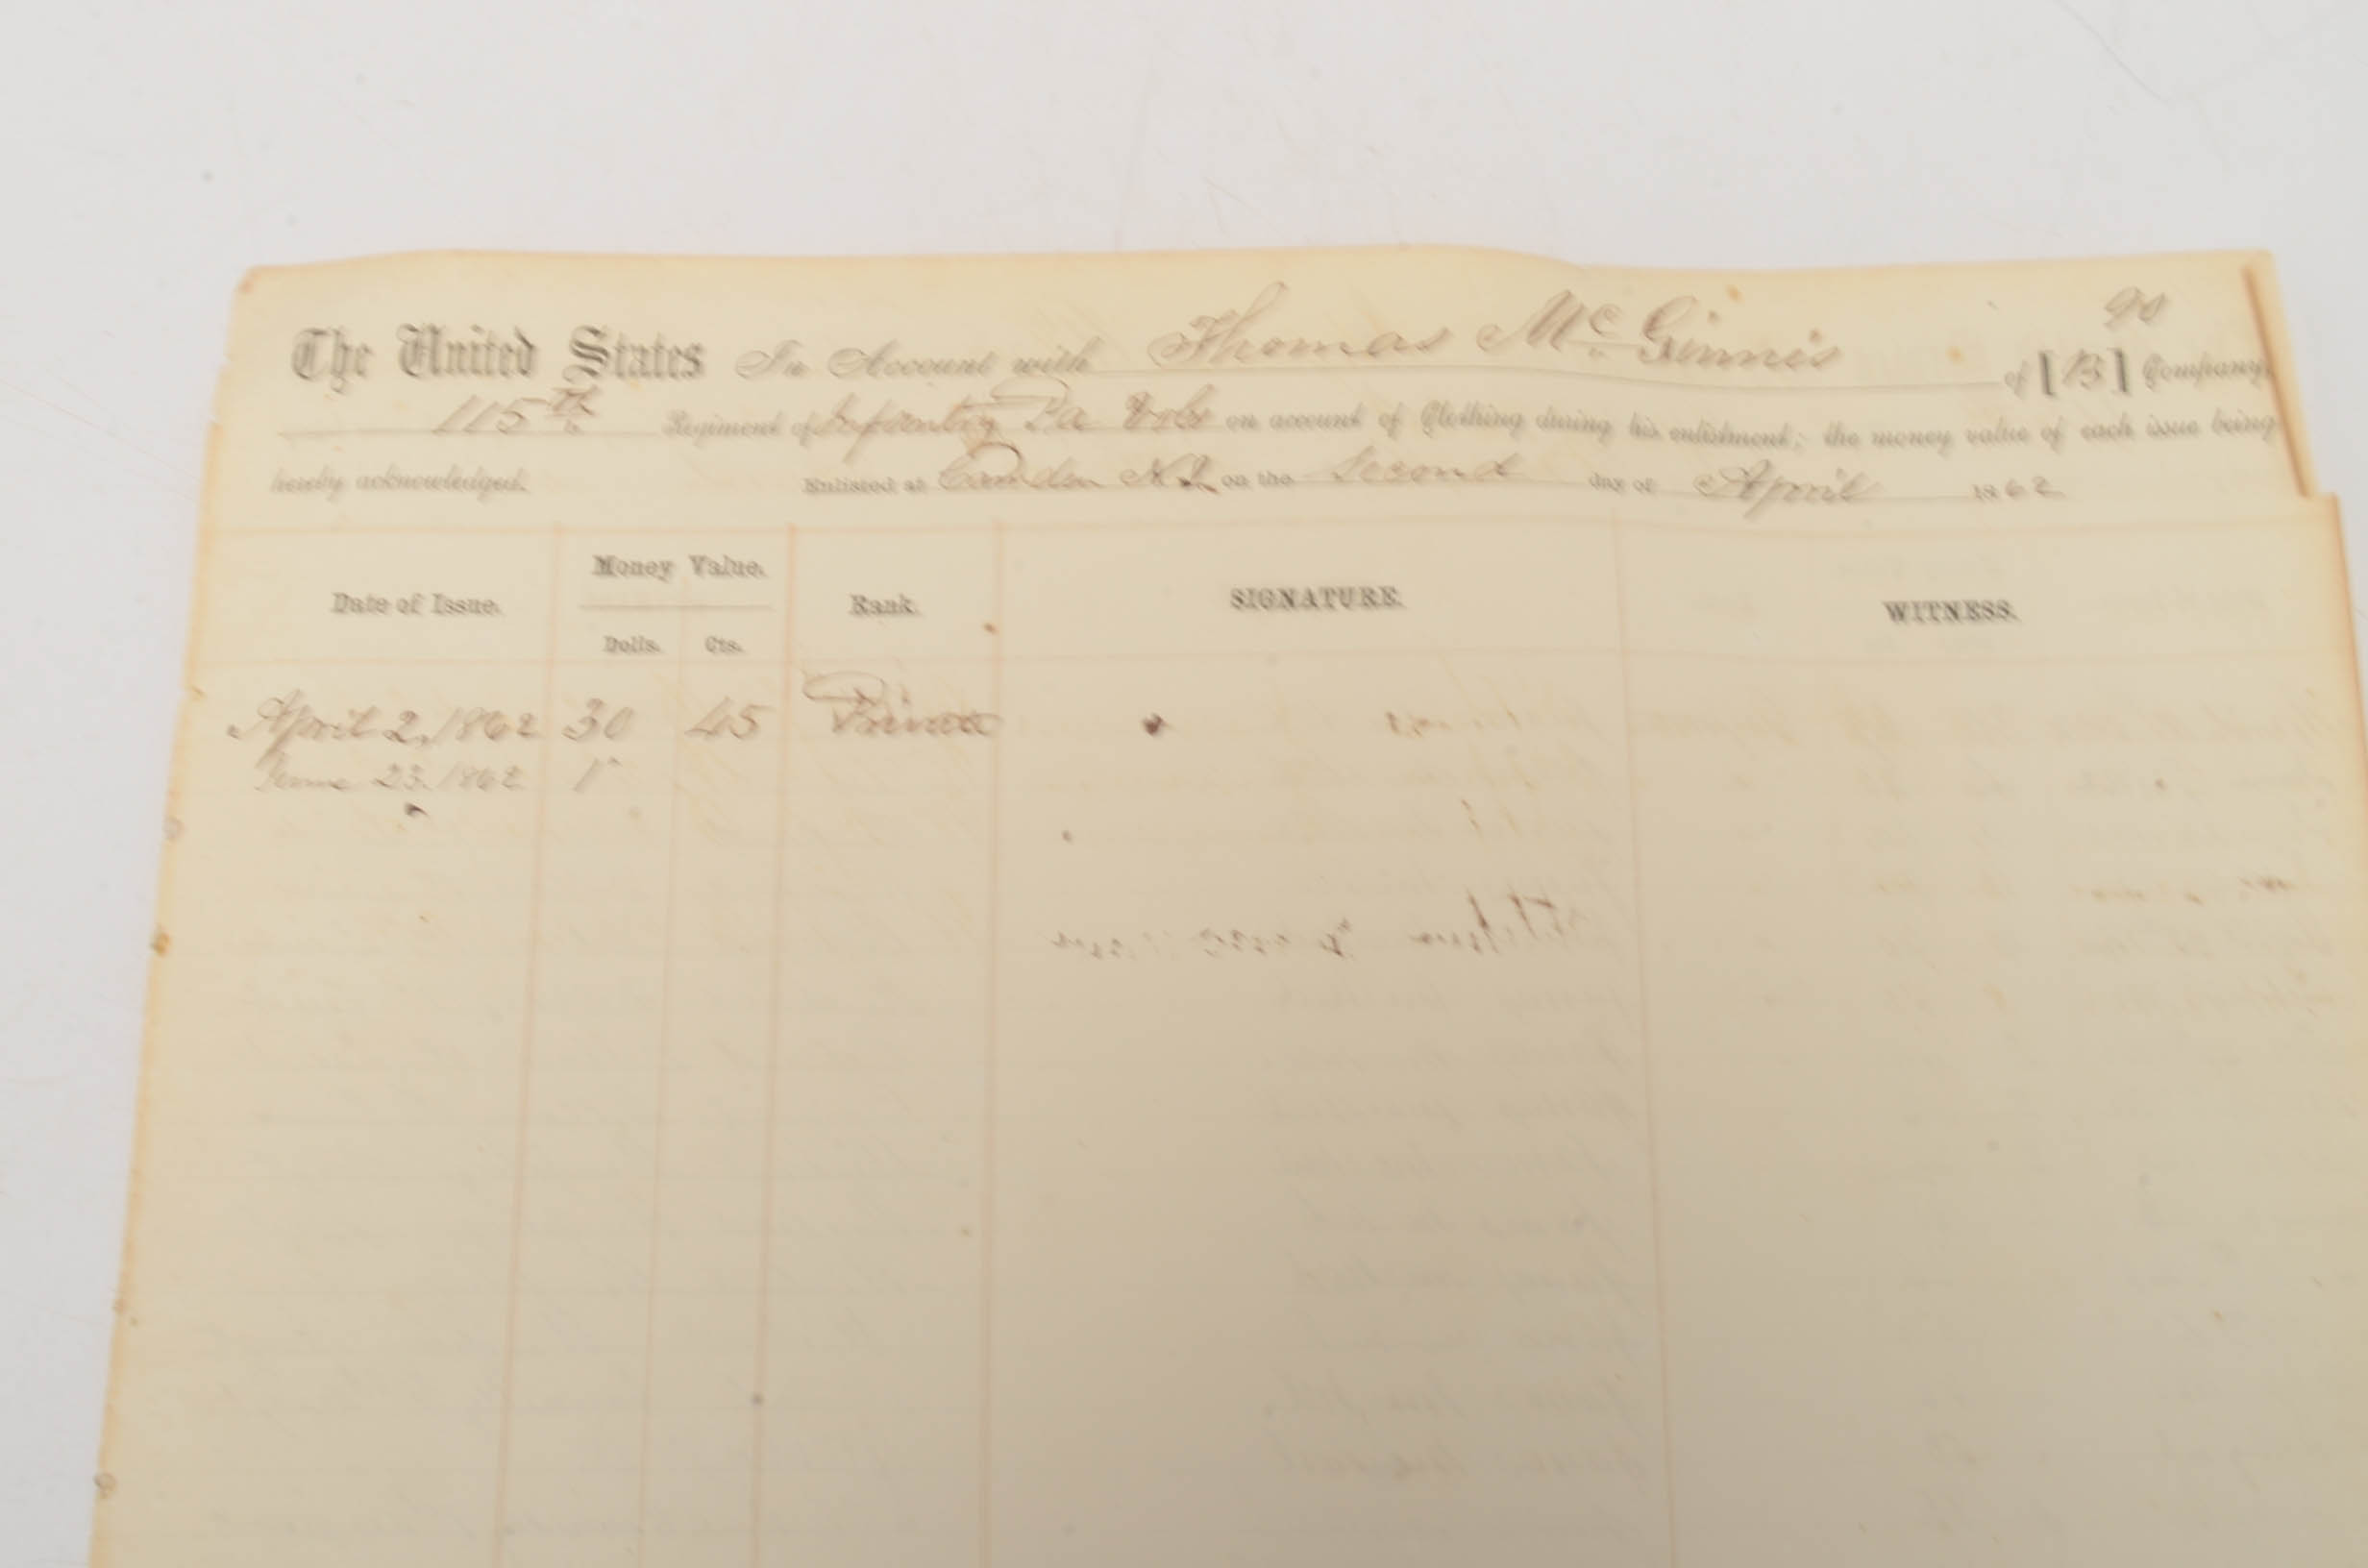 90
The United States In Account with Thomas Mc Ginnis of [B] Company,
115th Regiment of Infantry Pa Vols on account of Clothing during his enlistment; the money value of each issue being
hereby acknowledged. Enlisted at Camden N.J. on the Second day of April 1862
Date of Issue. Money Value. Rank. SIGNATURE. WITNESS.
Dolls. Cts.
April 2, 1862 30 45 Private
June 23, 1862 1